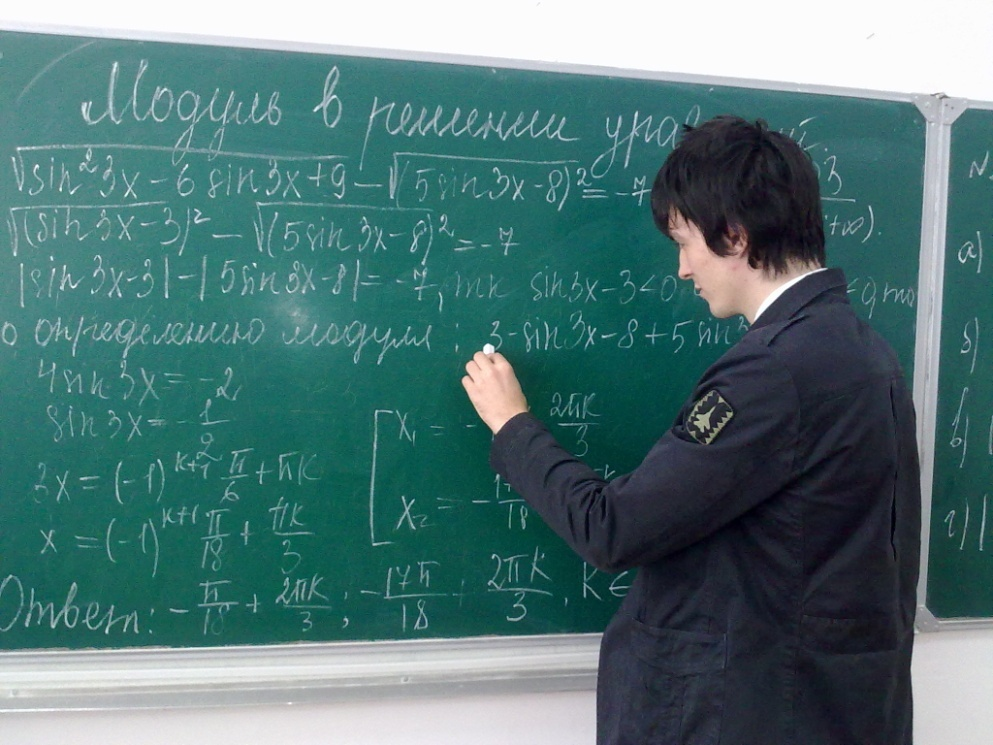 Модуль в решении
√sin²3x - 6 sin3x + 9 - √(5sin3x - 8)² = -7
√(sin3x - 3)² - √(5sin3x - 8)² = -7
|sin3x - 3| - |5sin3x - 8| = -7, тк sin3x - 3 < 0
о определению модуля : 3 - sin3x - 8 + 5 sin
4sin3x = -2
sin3x = -1/2
3x = (-1)^(k+1) π/6 + πk
x = (-1)^(k+1) π/18 + πk/3
x₁ = - 2πk/3
x₂ = -
Ответ: -π/18 + 2πk/3 ; -17π/18 + 2πk/3, k ∈
а)
б)
в)
г)